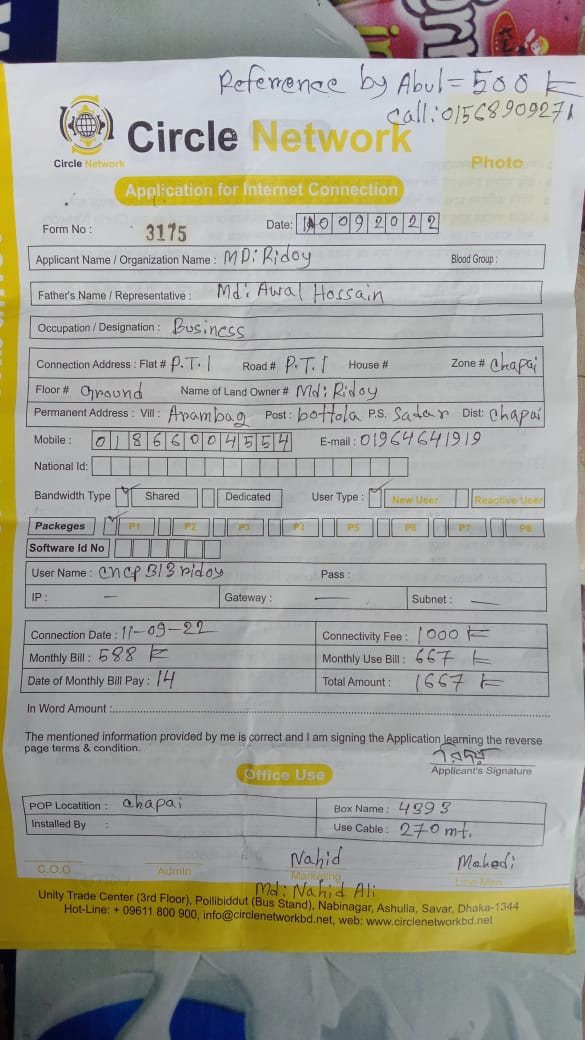 Reference by Abul = 500 ৳
Call: 01568909271
Circle Network
Circle Network
Photo
Application for Internet Connection
Form No : 3175 Date: 10092022
Applicant Name / Organization Name : MD: Ridoy Blood Group :
Father's Name / Representative : Md: Awal Hossain
Occupation / Designation : Business
Connection Address : Flat # P.T.I Road # P.T.I House # Zone # Chapai
Floor # Ground Name of Land Owner # Md: Ridoy
Permanent Address : Vill : Arambag Post : bottola P.S. Sadar Dist: Chapai
Mobile : 01866004554 E-mail : 01964641919
National Id:
Bandwidth Type ✓ Shared Dedicated User Type : ✓ New User Reactive User
Packeges ✓ P1 P2 P3 P4 P5 P6 P7 P8
Software Id No
User Name : cncp313ridoy Pass :
IP : — Gateway : — Subnet : —
Connection Date : 11-09-22 Connectivity Fee : 1000 ৳
Monthly Bill : 588 ৳ Monthly Use Bill : 667 ৳
Date of Monthly Bill Pay : 14 Total Amount : 1667 ৳
In Word Amount :
The mentioned information provided by me is correct and I am signing the Application learning the reverse
page terms & condition.
Applicant's Signature
Office Use
POP Locatition : Chapai Box Name : 4393
Installed By : Use Cable : 270 mt.
Nahid Mahedi
C.O.O Admin Marketing Line Man
Md: Nahid Ali
Unity Trade Center (3rd Floor), Pollibiddut (Bus Stand), Nabinagar, Ashulia, Savar, Dhaka-1344
Hot-Line: + 09611 800 900, info@circlenetworkbd.net, web: www.circlenetworkbd.net